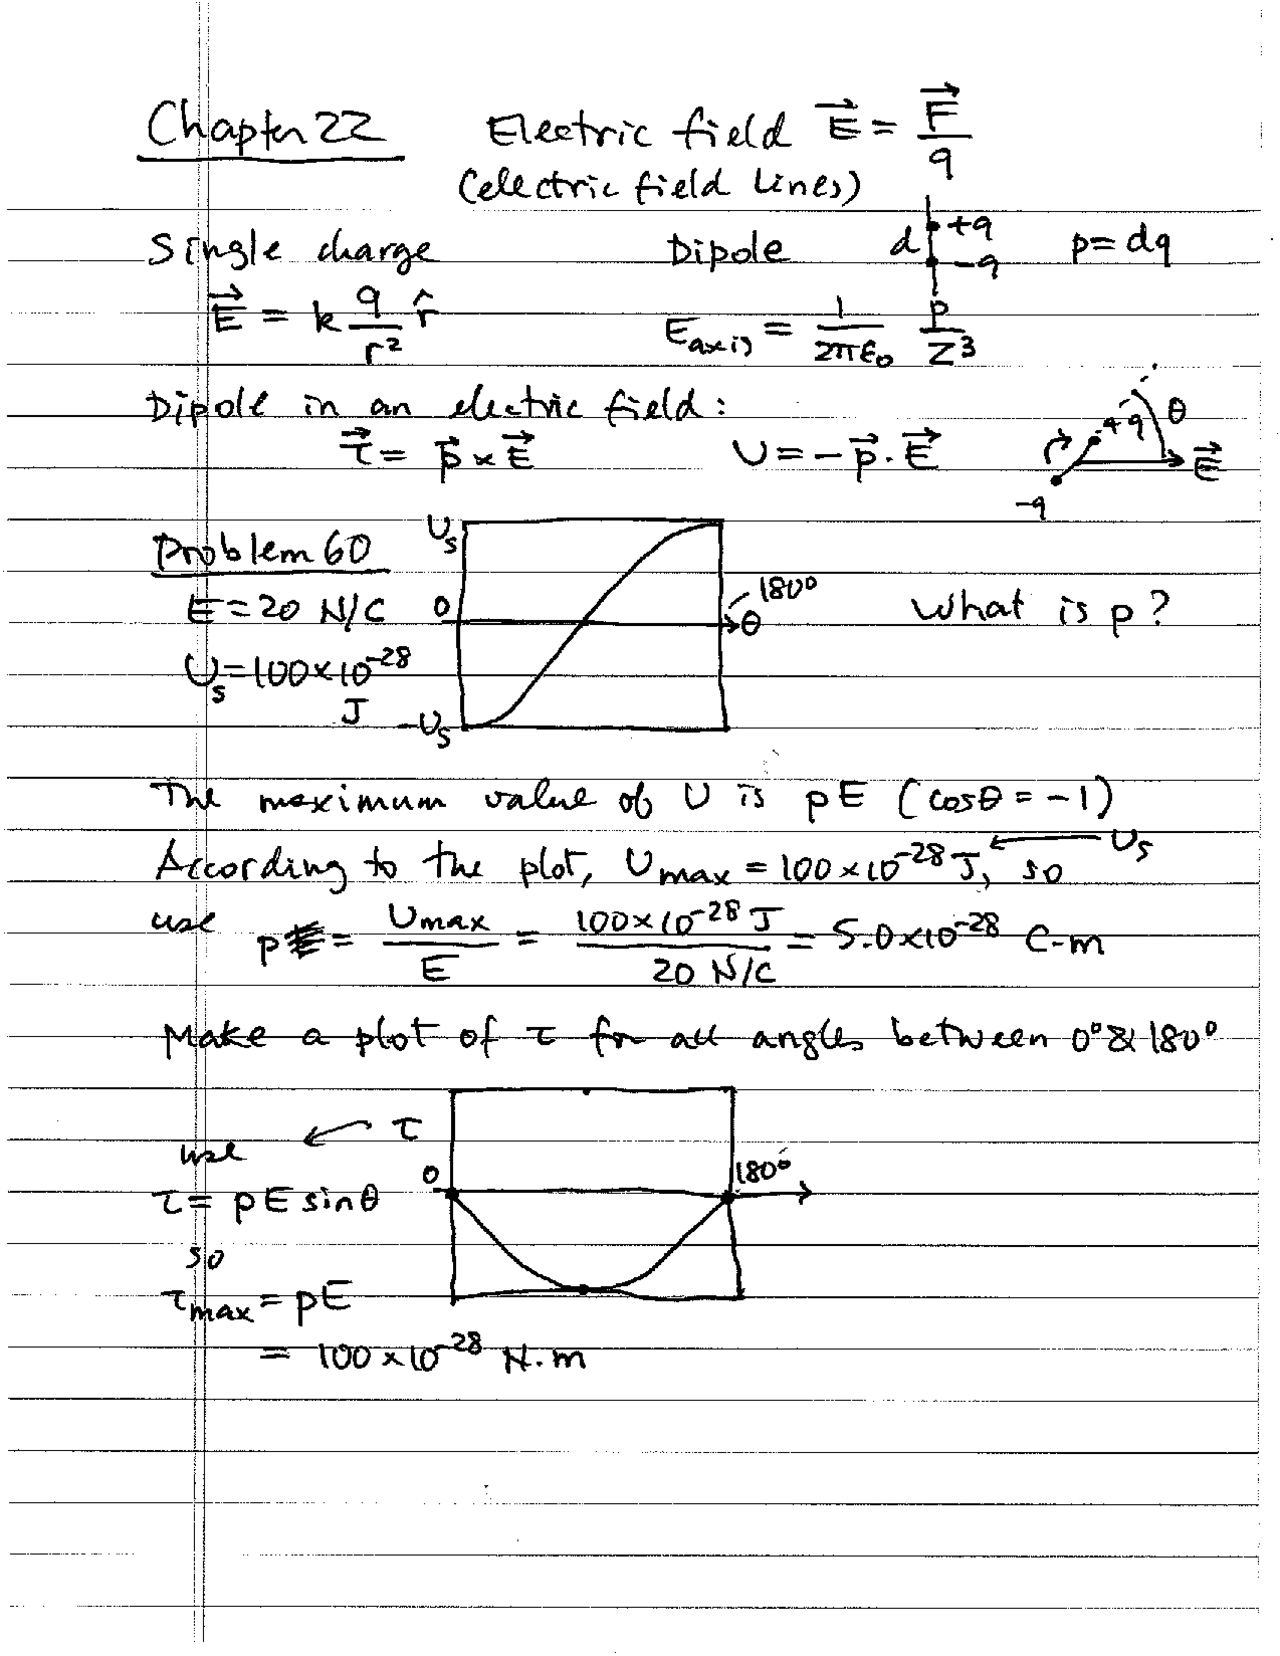 Chapter 22 Electric field E⃗ = F⃗/q
(electric field lines)
Single charge Dipole d +q -q p = dq
E⃗ = k q/r² r̂ E_axis = 1/(2πε₀) p/z³
Dipole in an electric field:
τ⃗ = p⃗ × E⃗ U = -p⃗ · E⃗ +q θ E⃗ -q
Problem 60 U_s
E = 20 N/C 0 180° θ What is p?
U_s = 100×10⁻²⁸ J -U_s
The maximum value of U is pE (cosθ = -1)
According to the plot, U_max = 100×10⁻²⁸ J, so U_s
use p = U_max/E = 100×10⁻²⁸ J/20 N/C = 5.0×10⁻²⁸ C-m
Make a plot of τ for all angles between 0° & 180°
use τ
0 180°
τ = pE sinθ
so
τ_max = pE
= 100×10⁻²⁸ N.m